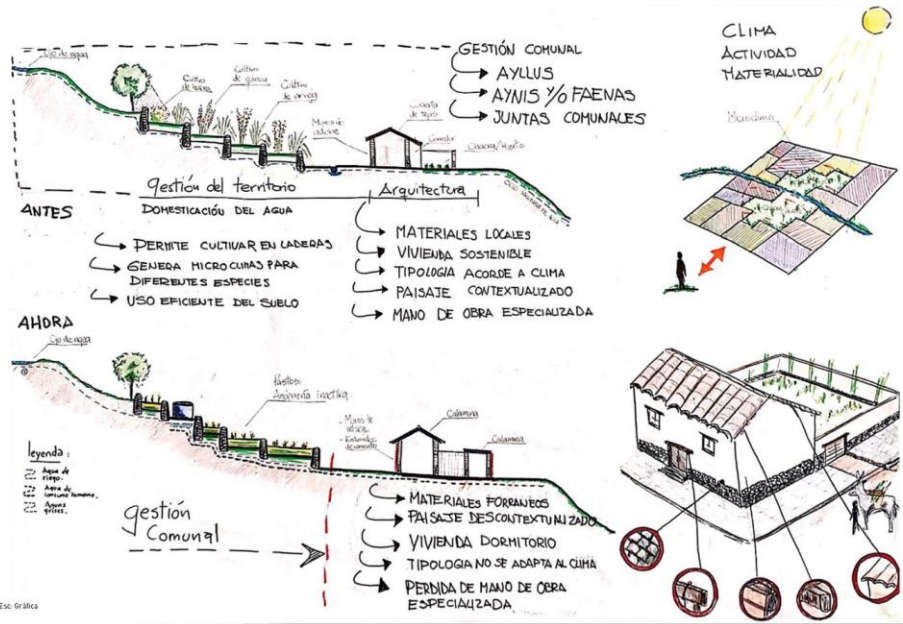 Ojo de agua
Cultivo de habas
Cultivo de quinua
Cultivo de arveja
Muros de adobe
Cubierta de tejas
Corredor
Chacra/Huerto
GESTIÓN COMUNAL
AYLLUS
AYNIS Y/O FAENAS
JUNTAS COMUNALES
ANTES
gestión del territorio
DOMESTICACIÓN DEL AGUA
PERMITE CULTIVAR EN LADERAS
GENERA MICROCLIMAS PARA
DIFERENTES ESPECIES
USO EFICIENTE DEL SUELO
Arquitectura
MATERIALES LOCALES
VIVIENDA SOSTENIBLE
TIPOLOGIA ACORDE A CLIMA
PAISAJE CONTEXTUALIZADO
MANO DE OBRA ESPECIALIZADA
CLIMA
ACTIVIDAD
MATERIALIDAD
Microclima
AHORA
Ojo de agua
Pastos:
Muros de
Calamina
Calamina
leyenda:
Agua de
riego.
Agua de
consumo humano.
Aguas
grises.
gestión
Comunal
MATERIALES FORRANEOS
PAISAJE DESCONTEXTUALIZADO
VIVIENDA DORMITORIO
TIPOLOGIA NO SE ADAPTA AL CLIMA
PERDIDA DE MANO DE OBRA
ESPECIALIZADA
Esc: Gráfica